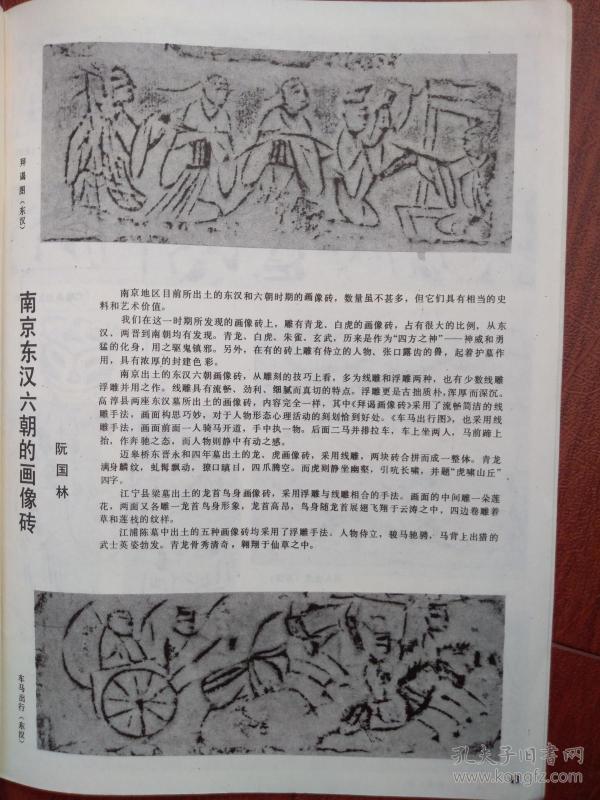 拜谒图（东汉）
南京东汉六朝的画像砖
阮国林
南京地区目前所出土的东汉和六朝时期的画像砖，数量虽不甚多，但它们具有相当的史
料和艺术价值。
我们在这一时期所发现的画像砖上，雕有青龙、白虎的画像砖，占有很大的比例，从东
汉、两晋到南朝均有发现。青龙、白虎、朱雀、玄武，历来是作为“四方之神”——神威和勇
猛的化身，用之驱鬼镇邪。另外，在有的砖上雕有侍立的人物、张口露齿的兽，起着护墓作
用，具有浓厚的封建色彩。
南京出土的东汉六朝画像砖，从雕刻的技巧上看，多为线雕和浮雕两种，也有少数线雕
浮雕并用之作。线雕具有流畅、劲利、细腻而真切的特点。浮雕更是古拙质朴，浑厚而深沉。
高淳县两座东汉墓所出土的画像砖，内容完全一样，其中《拜谒画像砖》采用了流畅简洁的线
雕手法，画面构思巧妙，对于人物形态心理活动的刻划恰到好处。《车马出行图》，也采用线
雕手法，画面前面一人骑马开道，手中执一物。后面二马并排拉车，车上坐两人，马前蹄上
抬，作奔驰之态，而人物则静中有动之感。
迈皋桥东晋永和四年墓出土的龙、虎画像砖，采用线雕，两块砖合拼而成一整体。青龙
满身麟纹，虬髯飘动，獠口瞋目，四爪腾空。而虎则静坐幽壑，引吭长啸，并题“虎啸山丘”
四字。
江宁县梁墓出土的龙首鸟身画像砖，采用浮雕与线雕相合的手法。画面的中间雕一朵莲
花，两面又各雕一龙首鸟身形象，龙首高昂，鸟身随龙首展翅飞翔于云涛之中，四边卷雕着
草和莲枝的纹样。
江浦陈墓中出土的五种画像砖均采用了浮雕手法。人物侍立，骏马驰骋，马背上出猎的
武士英姿勃发。青龙骨秀清奇，翱翔于仙草之中。
车马出行（东汉）
孔夫子旧书网